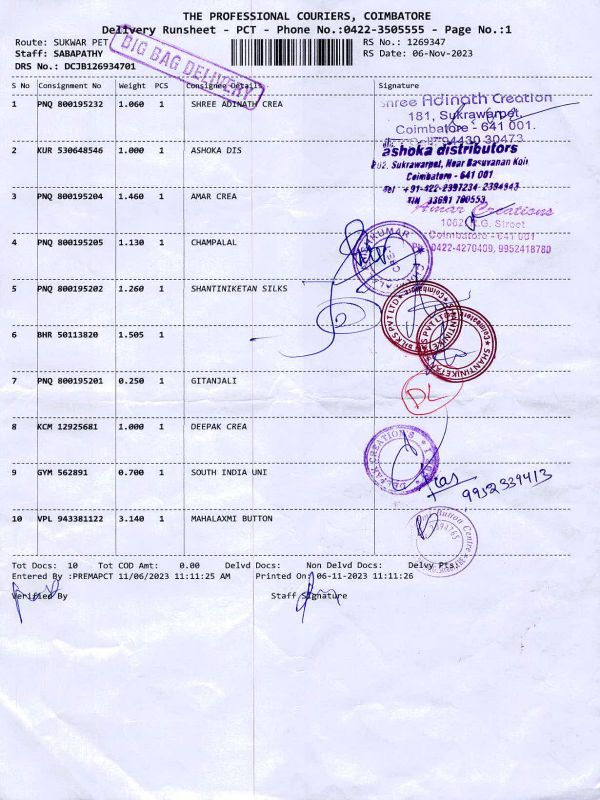 THE PROFESSIONAL COURIERS, COIMBATORE
Delivery Runsheet - PCT - Phone No.:0422-3505555 - Page No.:1
Route: SUKWAR PET RS No.: 1269347
Staff: SABAPATHY RS Date: 06-Nov-2023
DRS No.: DCJB126934701
BIG BAG DELIVERY
S No Consignment No Weight PCS Consignee Details Signature
1 PNQ 800195232 1.060 1 SHREE ADINATH CREA
Shree Adinath Creation
181, Sukrawarpet,
Coimbatore - 641 001.
94430 30473
2 KUR 530648546 1.000 1 ASHOKA DIS
ashoka distributors
202. Sukrawarpet, Near Basuvanan Koil
Coimbatore - 641 001
Tel +91-422-2397234 2394943
TIN 33691 700553
3 PNQ 800195204 1.460 1 AMAR CREA
Amar Creations
Street
Coimbatore - 641 001
Ph: 0422-4270409, 9952418780
4 PNQ 800195205 1.130 1 CHAMPALAL
5 PNQ 800195202 1.260 1 SHANTINIKETAN SILKS
SHANTINIKETAN SILKS PVT LTD
Coimbatore
6 BHR 50113820 1.505 1
7 PNQ 800195201 0.250 1 GITANJALI
DL
8 KCM 12925681 1.000 1 DEEPAK CREA
DEEPAK CREATIONS
9 GYM 562891 0.700 1 SOUTH INDIA UNI
9952339413
10 VPL 943381122 3.140 1 MAHALAXMI BUTTON
Button Centre
2394765
Tot Docs: 10 Tot COD Amt: 0.00 Delvd Docs: Non Delvd Docs: Delvy Pts:
Entered By :PREMAPCT 11/06/2023 11:11:25 AM Printed On: 06-11-2023 11:11:26
Verified By Staff Signature